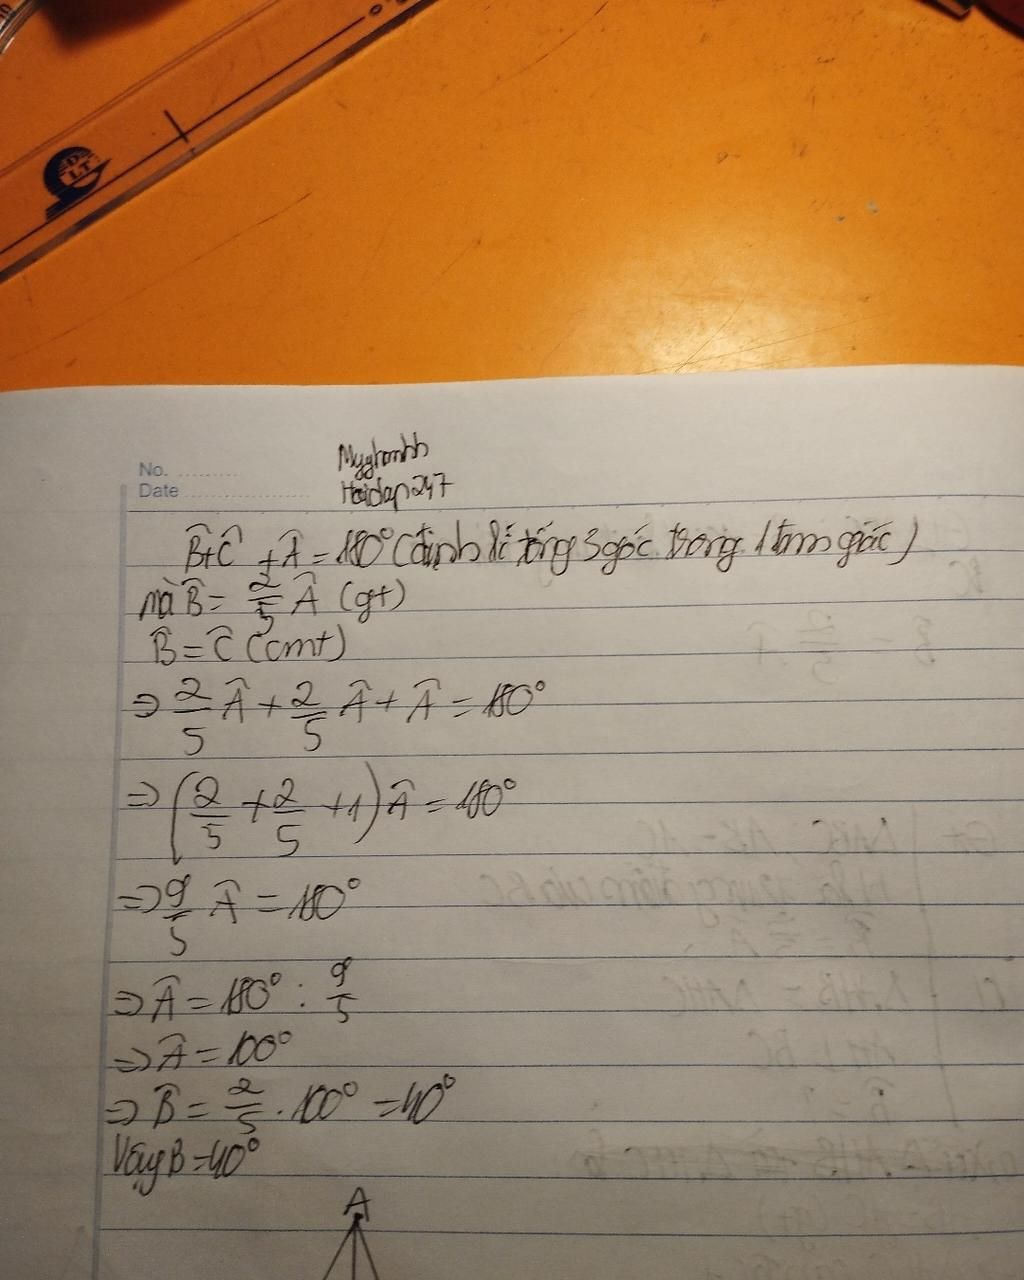 DLT
No.
Date
Hoidap247
B̂+Ĉ + Â = 180° (định lí tổng 3 góc trong 1 tam giác)
mà B̂ = 2/5 Â (gt)
B̂ = Ĉ (cmt)
=> 2/5 Â + 2/5 Â + Â = 180°
=> (2/5 + 2/5 + 1) Â = 180°
=> 9/5 Â = 180°
=> Â = 180° : 9/5
=> Â = 100°
=> B̂ = 2/5 . 100° = 40°
Vậy B = 40°
A